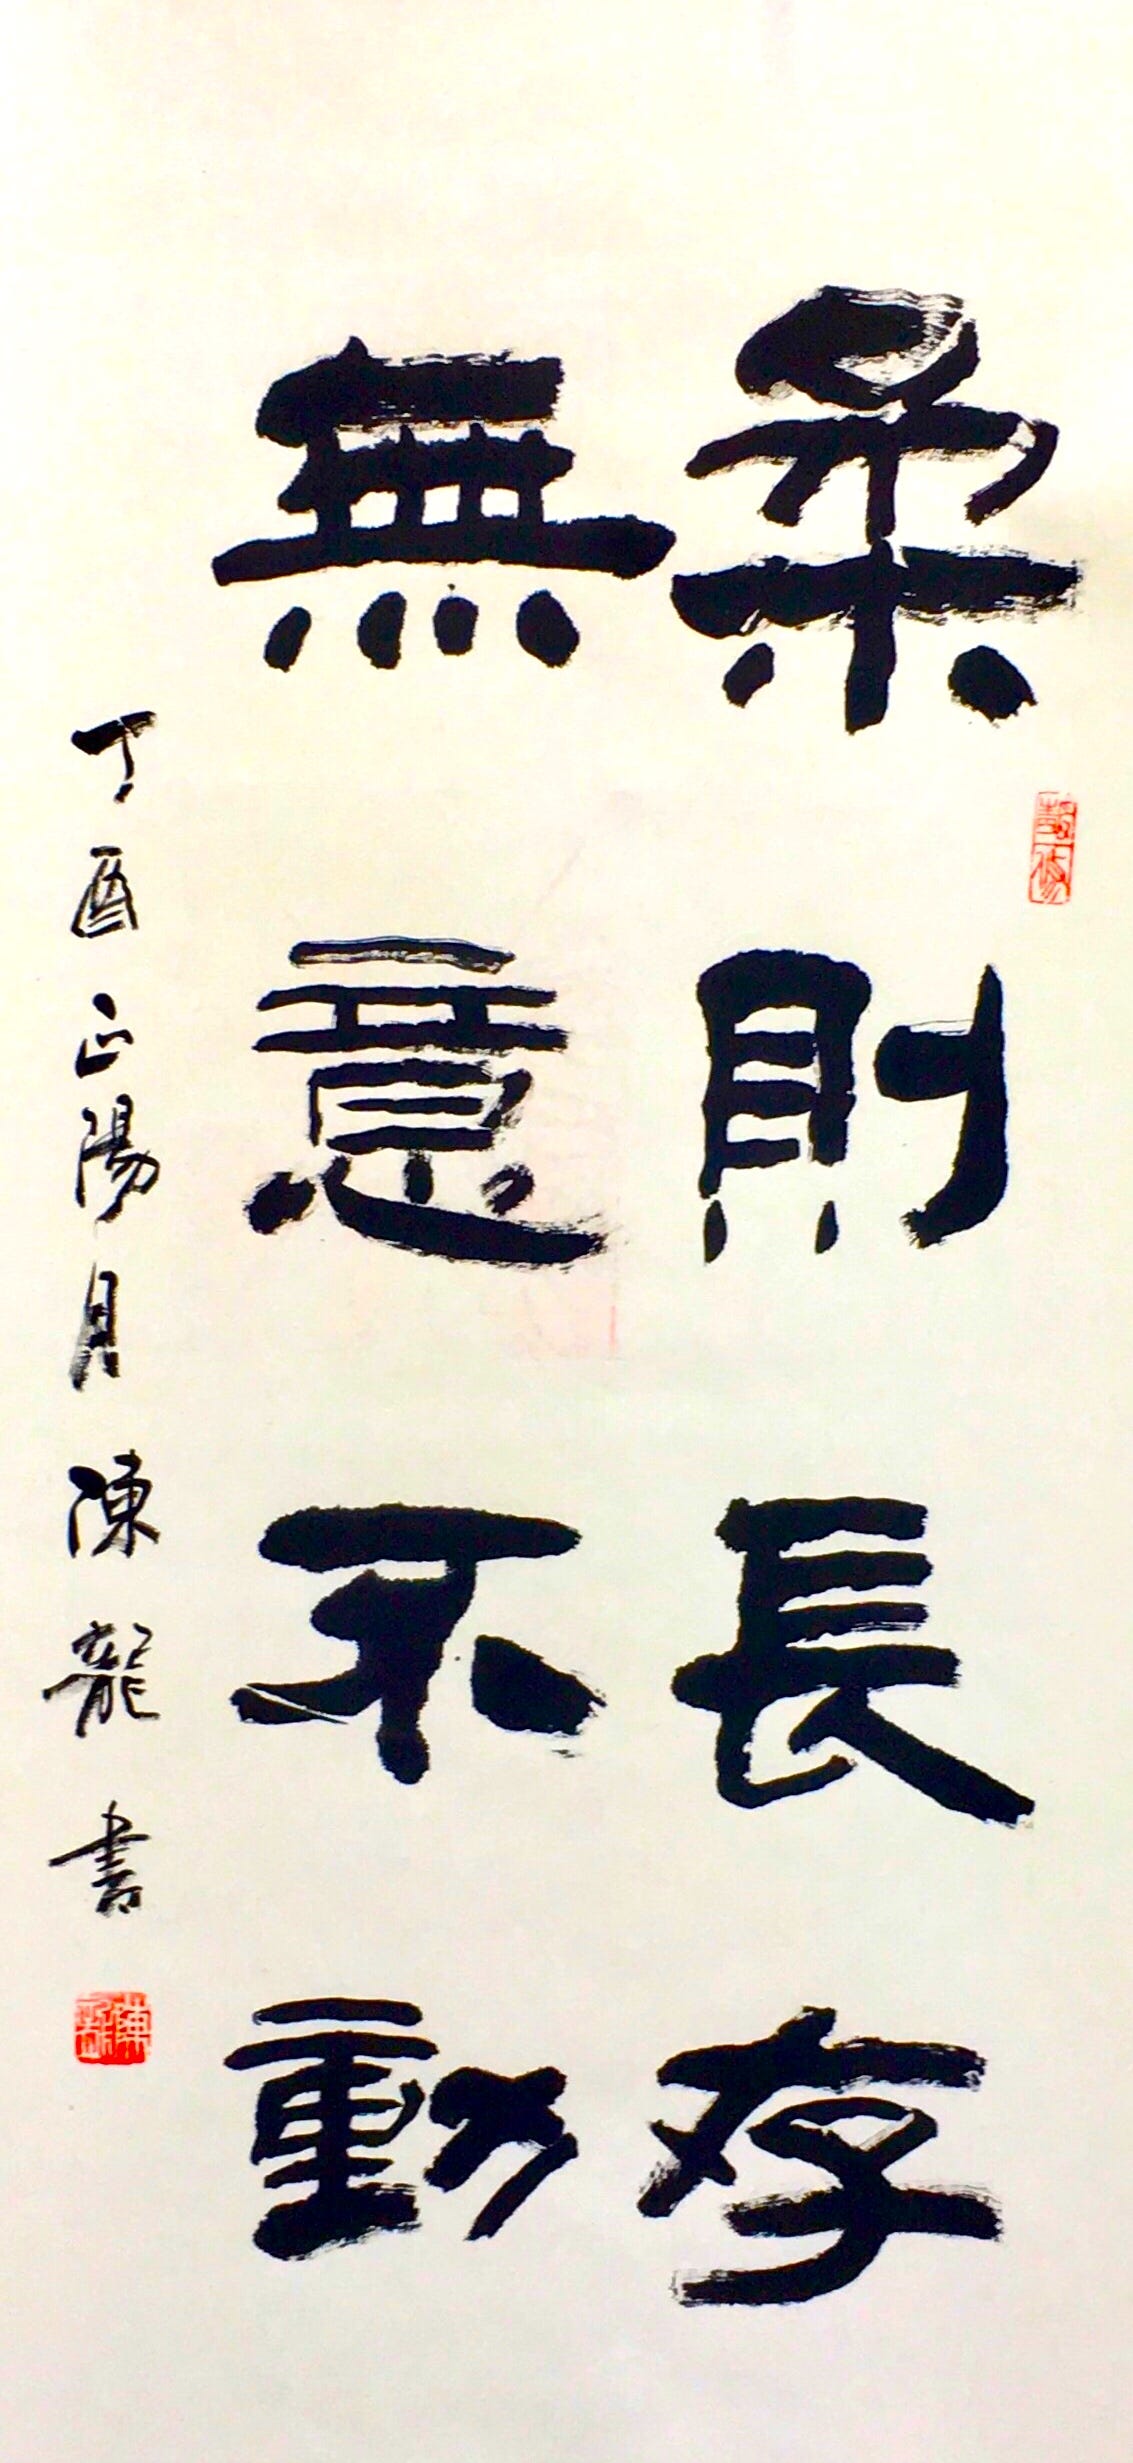 柔則長存
無意不動
丁酉正陽月陳龍書